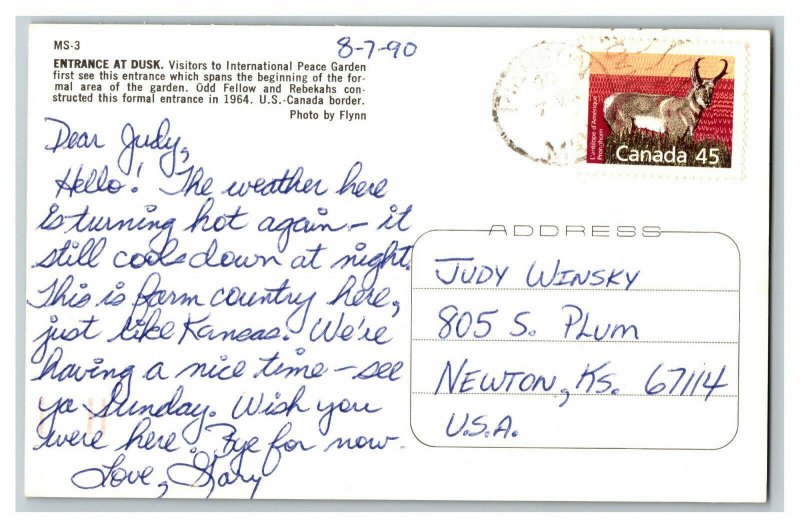 MS-3
ENTRANCE AT DUSK. Visitors to International Peace Garden
first see this entrance which spans the beginning of the for-
mal area of the garden. Odd Fellow and Rebekahs con-
structed this formal entrance in 1964. U.S.-Canada border.
Photo by Flynn
8-7-90
Dear Judy,
Hello! The weather here
is turning hot again - it
still cools down at night.
This is farm country here,
just like Kansas. We're
having a nice time - see
ya Sunday. Wish you
were here. Bye for now.
Love, Gary
L'antilope d'Amérique
Pronghorn
Canada 45
ADDRESS
JUDY WINSKY
805 S. PLUM
NEWTON, KS. 67114
U.S.A.